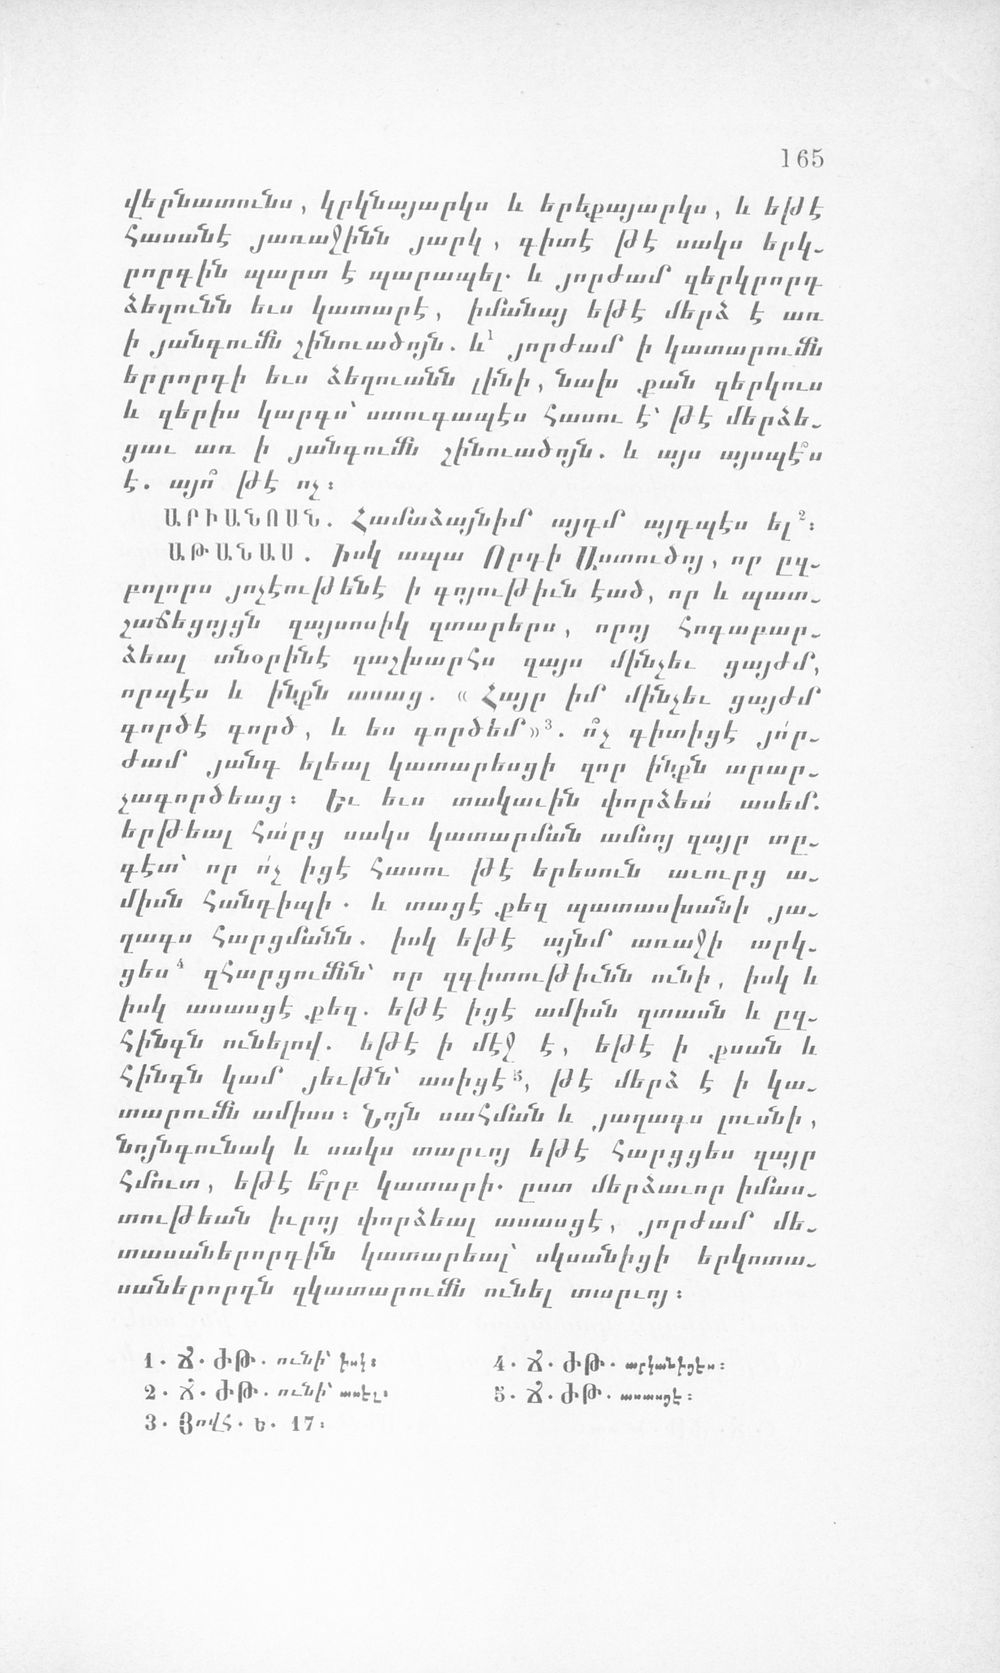 165
վերնատունս, կրկնայարկս և երեքայարկս, և եթէ
հասանէ յառաջինն յարկ, գիտէ թէ սակս երկ-
րորդին պարտ է պարապել. և յորժամ զերկրորդ
ձեղունն ևս կատարէ, իմանայ եթէ մերձ է առ
ի յանգումն շինուածոյն. և¹ յորժամ ի կատարումն
երրորդի եւս ձեղուանն լինի, նախ քան զերկուս
և զերիս կարգս՝ ստուգապէս հասու է՝ թէ մերձե-
ցաւ առ ի յանգումն շինուածոյն. և այս այսպէ՞ս
է. այո՞ թէ ոչ։
ԱՐԻԱՆՈՍՆ. Համաձայնիմ այդմ այդպէս ել²։
ԱԹԱՆԱՍ. Իսկ ապա Որդի Աստուծոյ, որ ըզ-
բոլորս յոչէութենէ ի գոյութիւն էած, որ և պատ-
շաճեցոյցն զայսոսիկ զտարերս, որոյ հոգաբար-
ձեալ տնօրինէ զաշխարհս զայս մինչեւ ցայժմ,
որպէս և ինքն ասաց. « Հայր իմ մինչեւ ցայժմ
գործէ գործ, և ես գործեմ»³. ո՞չ գիտիցէ յո՛ր-
ժամ յանգ ելեալ կատարեսցի զոր ինքն արար-
չագործեաց։ Եւ եւս տակաւին փորձեա՛ ասեմ.
երթեալ հա՛րց սակս կատարման ամսոյ զայր տը-
գէտ՝ որ ո՛չ իցէ հասու թէ երեսուն աւուրց ա-
միսն հանդիպի. և տացէ քեզ պատասխանի յա-
ղագս հարցմանն. իսկ եթէ այնմ առաջի արկ-
ցես⁴ զհարցումնն՝ որ զգիտութիւնն ունի, իսկ և
իսկ ասասցէ քեզ. եթէ իցէ ամիսն զտասն և ըզ-
հինգն ունելով. եթէ ի մէջ է, եթէ ի քսան և
հինգն կամ յեւթն՝ ասիցէ⁵, թէ մերձ է ի կա-
տարումն ամիսս։ Նոյն սահման և յաղագս լուսնի,
նոյնգունակ և սակս տարւոյ եթէ հարցցես զայր
հմուտ, եթէ ե՞րբ կատարի. ըստ մերձաւոր իմաս-
տութեան իւրոյ փորձեալ ասասցէ, յորժամ մե-
տասաներորդին կատարեալ՝ սկսանիցի երկոտա-
սաներորդն զկատարումն ունել տարւոյ։
1. Ճ. ԺԹ. ունի՝ իսկ։
2. Ճ. ԺԹ. ունի՝ ասէլ։
3. Յովհ. ե. 17։
4. Ճ. ԺԹ. արկանիցես։
5. Ճ. ԺԹ. ասասցէ։